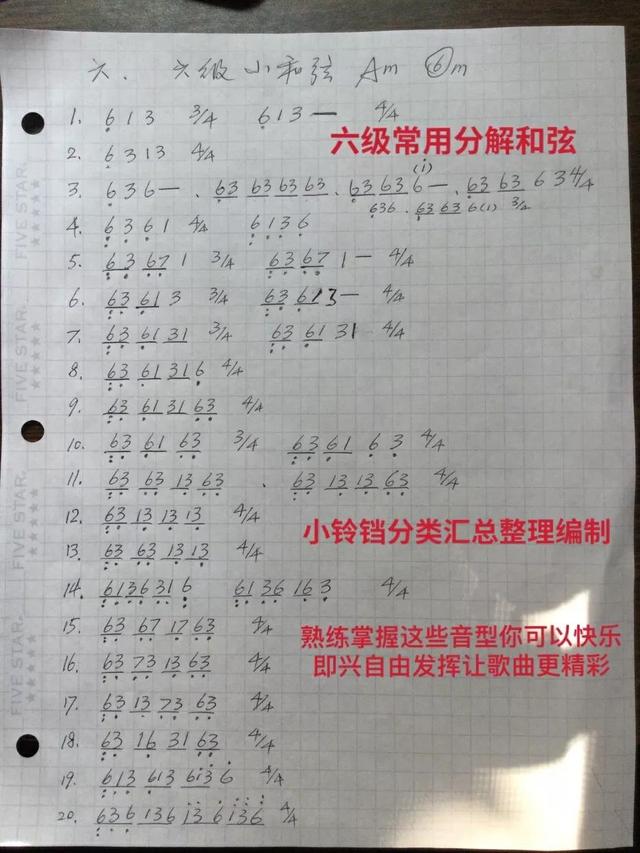 六. 六级小和弦 Am ⑥m
1. 613 3/4 613— 4/4
六级常用分解和弦
2. 6313 4/4
(i)
3. 636— . 63 63 63 63 . 63 63 6— . 63 63 6 3 4/4
636 . 63 63 6(i) 3/4
4. 6361 4/4 6136
5. 63 67 1 3/4 63 67 1— 4/4
6. 63 61 3 3/4 63 61 3— 4/4
7. 63 61 31 3/4 63 61 31 4/4
8. 63 61 31 6 4/4
9. 63 61 31 63 4/4
10. 63 61 63 3/4 63 61 6 3 4/4
11. 63 63 13 63 . 63 13 13 63 4/4
12. 63 13 13 13 4/4
小铃铛分类汇总整理编制
13. 63 63 13 13 4/4
14. 613631 6 6136 16 3 4/4
15. 63 67 17 63 4/4
熟练掌握这些音型你可以快乐
即兴自由发挥让歌曲更精彩
16. 63 73 13 63 4/4
17. 63 13 73 63 4/4
18. 63 16 31 63 4/4
19. 613 613 613 6 4/4
20. 636 136 13 6 136 4/4
FIVE STAR.
FIVE STAR.
FIVE STAR.
FIVE STAR.